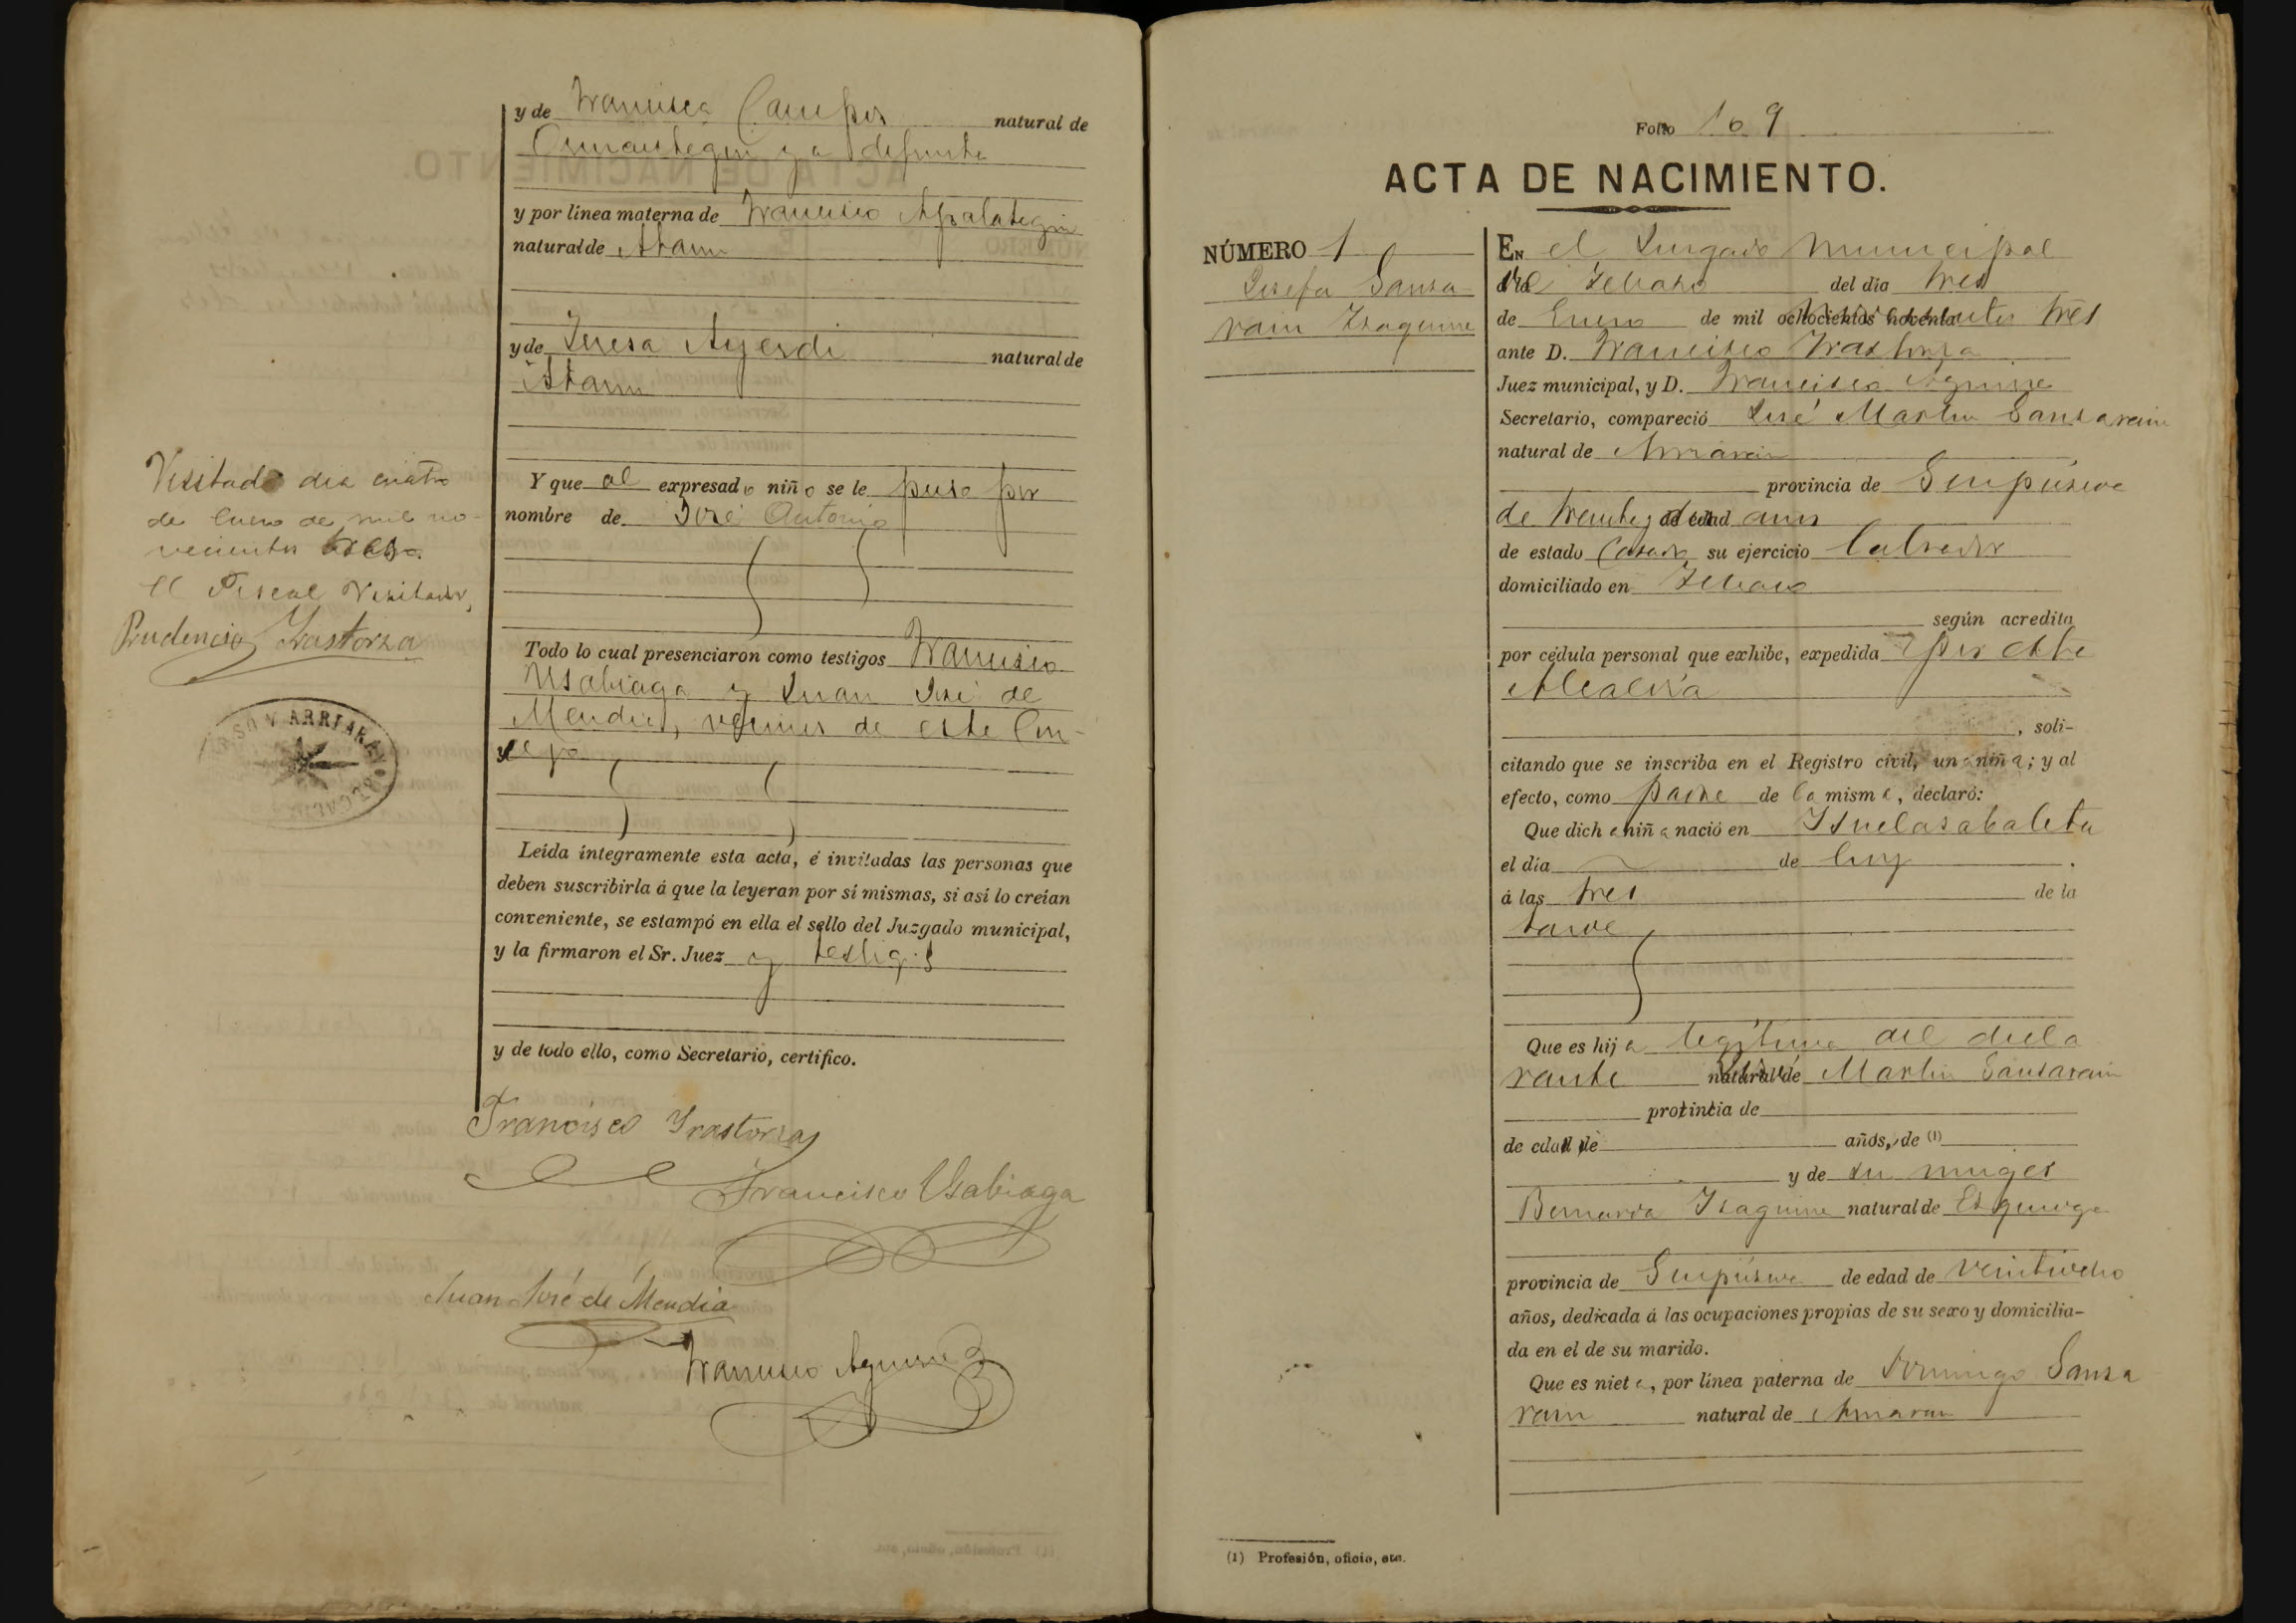 y de Francisca Campos natural de
Ormaiztegui ya difunta
y por línea materna de Francisco Apalategui
natural de Ataun
y de Teresa Ayerdi natural de
Ataun
Y que al expresado niño se le puso por
nombre de José Antonio
Todo lo cual presenciaron como testigos Francisco
Usabiaga y Juan José de
Mendia, vecinos de este Con-
cejo
Leída íntegramente esta acta, é invitadas las personas que
deben suscribirla á que la leyeran por sí mismas, si así lo creían
conveniente, se estampó en ella el sello del Juzgado municipal,
y la firmaron el Sr. Juez y testigos
y de todo ello, como Secretario, certifico.
Francisco Yrastorza
Francisco Usabiaga
Juan José de Mendia
Francisco Aguirre
Visitado dia cuatro
de Enero de mil no-
vecientos
El Fiscal Visitador,
Prudencio Yrastorza
ARRIARAN
Folio 109
ACTA DE NACIMIENTO.
NÚMERO 1
Josefa Sansa
rain Yzaguirre
EN el Jusgado municipal
de del día tres
de Enero de mil ochocientos noventa tres
ante D. Francisco Yrastorza
Juez municipal, y D. Francisco Aguirre
Secretario, compareció José Martin Sansarain
natural de Arriaran
provincia de Guipúscoa
de treinta y de edad años
de estado Casado su ejercicio labrador
domiciliado en
según acredita
por cédula personal que exhibe, expedida por esta
Alcaldía
, soli-
citando que se inscriba en el Registro civil, una niña; y al
efecto, como padre de la misma, declaró:
Que dicha niña nació en
el día de hoy.
á las tres de la
tarde
Que es hija legítima del decla
rante natural de José Martin Sansarain
provincia de
de edad de años, de (1)
y de su muger
Bernarda Yzaguirre natural de Esquioga
provincia de Guipúscoa de edad de veintiocho
años, dedicada á las ocupaciones propias de su sexo y domicilia-
da en el de su marido.
Que es nieta, por línea paterna de Domingo Sansa
rain natural de Arriaran
(1) Profesión, oficio, etc.